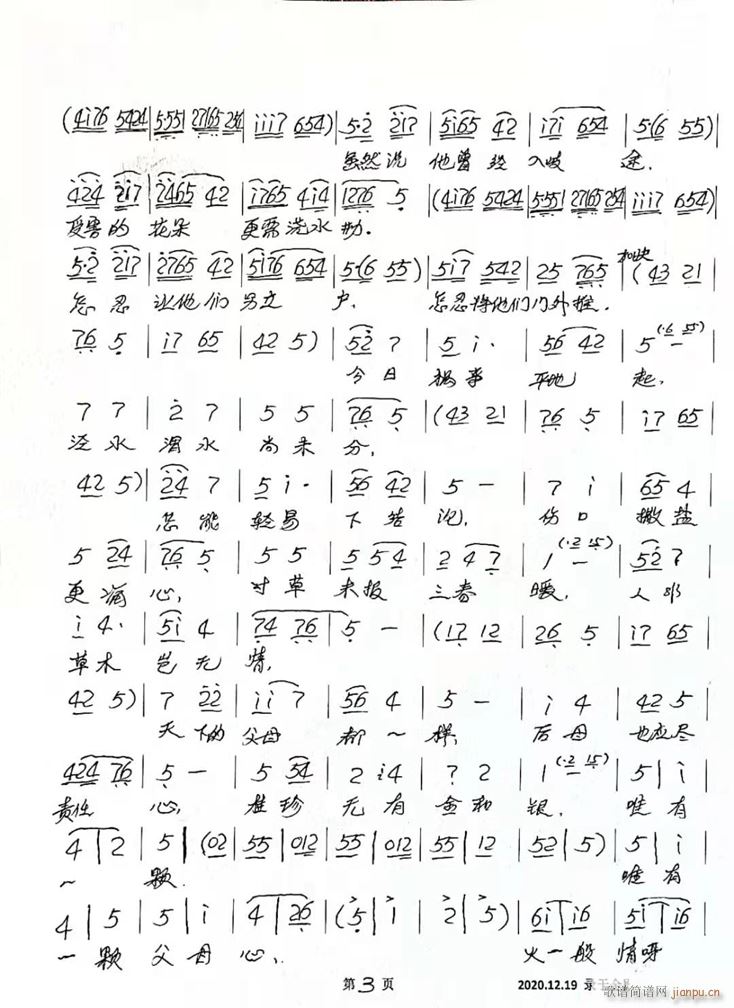 (4i76 5424 | 5·551 27165 254 | iii7 654) | 5·2 2i7 | 5i65 42 | i7i 654 | 5·(6 55) |
虽然说 他曾经 入歧 途.
424 2i7 | 2465 42 | i765 4i4 | 1276 5 | (4i76 5424 | 5·551 27165 254 | iii7 654) |
受害的 花朵 更需浇水 勤.
5·2 2i7 | 2765 42 | 5i76 654 | 5·(6 55) | 5i7 542 | 25 765 | 加快 (43 21 |
怎忍 让他们 另立 户, 怎忍将他们门外推.
76 5 | i7 65 | 42 5) | 52 7 | 5 i· | 56 42 | 5 (·6 55) – |
今日 祸事 平地 起,
7 7 | 2 7 | 5 5 | 76 5 | (43 21 | 76 5 | i7 65 |
泾水 浑水 尚未 分,
42 5) | 24 7 | 5 i· | 56 42 | 5 – | 7 i | 65 4 |
怎能 轻易 下结 论, 伤口 撒盐
5 24 | 76 5 | 5 5 | 5 54 | 2 47 | 1 (·2 15) – | 52 7 |
更痛 心, 寸草 未报 三春 暖, 人非
i 4· | 5i 4 | 74 76 | 5 – | (17 12 | 26 5 | i7 65 |
草木 岂无 情,
42 5) | 7 22 | ii 7 | 56 4 | 5 – | i 4 | 42 5 |
天下的 父母 都一 样, 后母 也应尽
424 76 | 5 – | 5 54 | 2 i4 | 7 2 | 1 (·2 15) – | 5 | i |
责任 心, 桂珍 无有 金和 银, 唯有
4 | 2 | 5 | (02 | 55 | 012 | 55 | 012 | 55 | 12 | 52 | 5) | 5 | i |
一 颗. 唯有
4 | 5 | 5 | i | 4 | 26 | (5 | 1 | 2 | 5) | 6i | i6 | 5i | i6 |
一颗 父母 心, 火一般 情呀
第 3 页
2020.12.19
歌谱简谱网
jianpu.cn